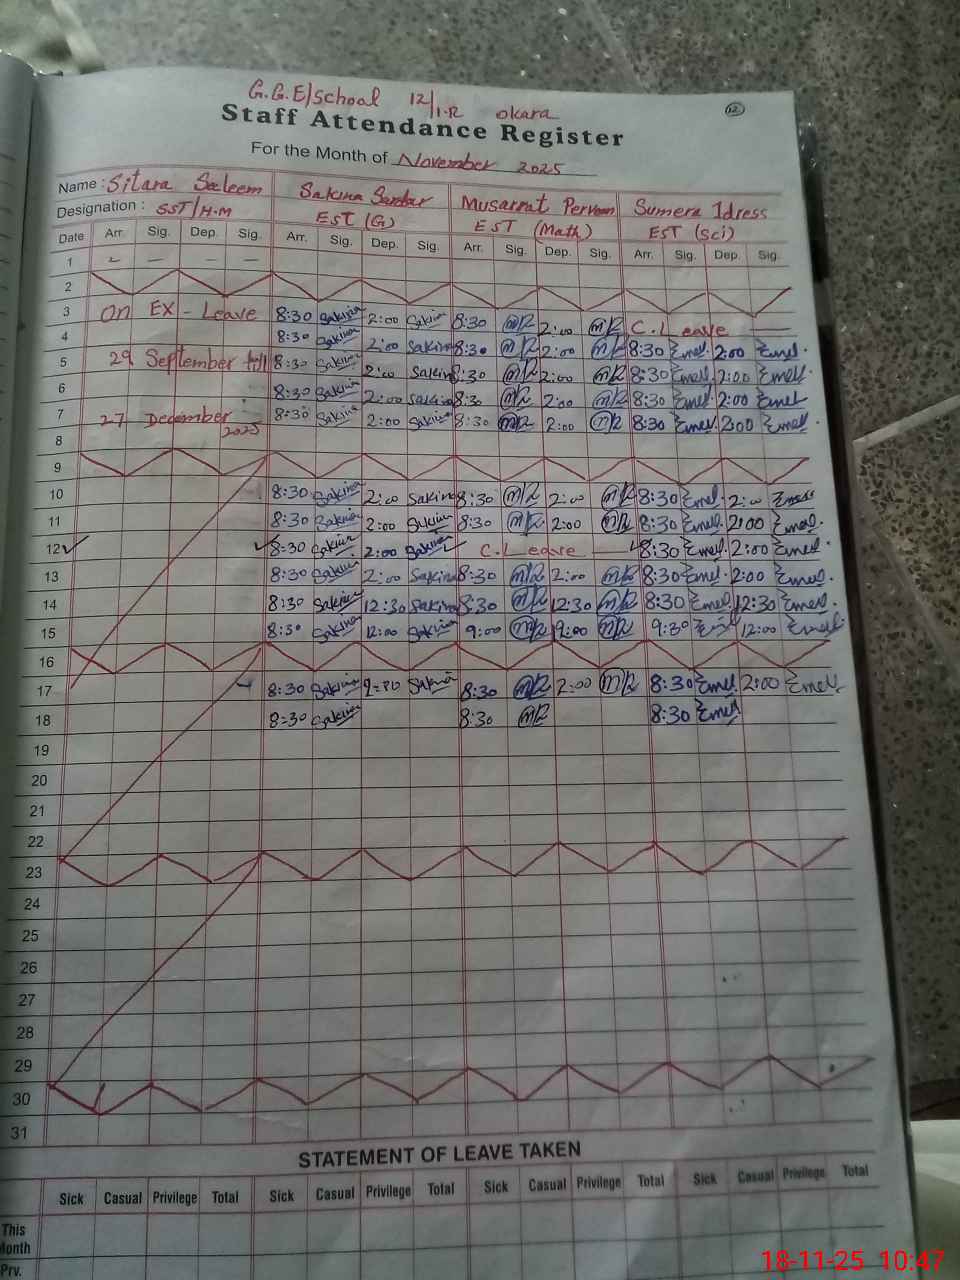 G.G.E/School 12/1.R okara
12
Staff Attendance Register
For the Month of November 2025
Name : Sitara Saleem Sakina Sardar Musarrat Perveen Sumera Idress
Designation : SST/H.M EST (G) EST (Math) EST (sci)
Date Arr. Sig. Dep. Sig. Arr. Sig. Dep. Sig. Arr. Sig. Dep. Sig. Arr. Sig. Dep. Sig.
1 – – – –
2
3 On EX - Leave 8:30 Sakina 2:00 Sakina 8:30 MR 2:00 MR C. Leave
4 8:30 Sakina 2:00 Sakina 8:30 MR 2:00 MR 8:30 2:00
5 29 September till 8:30 Sakina 2:00 Sakina 8:30 MR 2:00 MR 8:30 2:00
6 8:30 Sakina 2:00 Sakina 8:30 MR 2:00 MR 8:30 2:00
7 27 December 2025 8:30 Sakina 2:00 Sakina 8:30 MR 2:00 MR 8:30 2:00
8
9
10 8:30 Sakina 2:00 Sakina 8:30 MR 2:00 MR 8:30 2:00
11 8:30 Sakina 2:00 Sakina 8:30 MR 2:00 MR 8:30 2:00
12 8:30 Sakina 2:00 Sakina C. Leave 8:30 2:00
13 8:30 Sakina 2:00 Sakina 8:30 MR 2:00 MR 8:30 2:00
14 8:30 Sakina 12:30 Sakina 8:30 MR 12:30 MR 8:30 12:30
15 8:30 Sakina 12:00 Sakina 9:00 MR MR 9:30 12:00
16
17 8:30 Sakina Sakina 8:30 MR 2:00 MR 8:30 2:00
18 8:30 Sakina 8:30 MR 8:30
19
20
21
22
23
24
25
26
27
28
29
30
31
STATEMENT OF LEAVE TAKEN
Sick Casual Privilege Total Sick Casual Privilege Total Sick Casual Privilege Total Sick Casual Privilege Total
This Month
Prv.
18-11-25 10:47